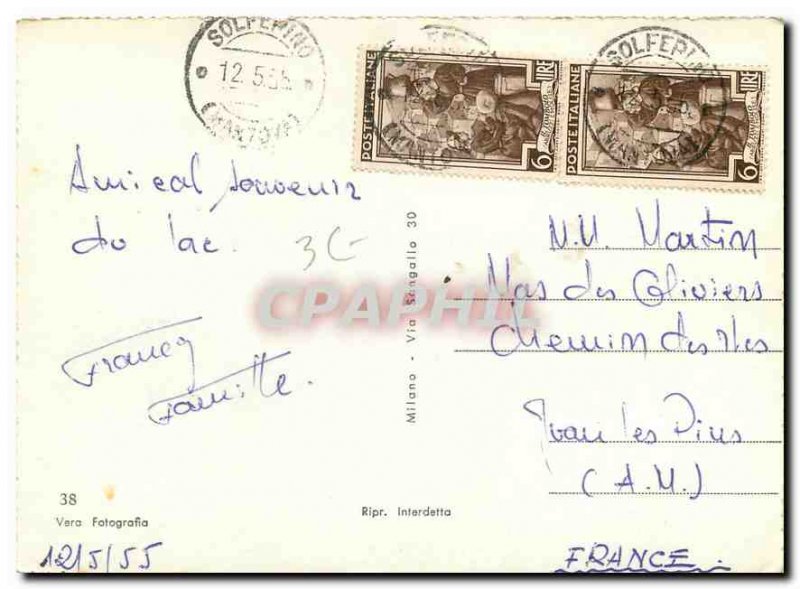 SOLFERINO
12.5.55
(MANTOVA)
SOLFERINO
(MANTOVA)
POSTE ITALIANE
LIRE
6
POSTE ITALIANE
LIRE
6
Amical souvenir
du lac.
3€
Francy
Famille.
Milano - Via Sangallo 30
M.M. Martin
Mas des Oliviers
Chemin des Iles
Juan les Pins
(A.M.)
FRANCE.
CPAPHIL
38
Vera Fotografia
Ripr. Interdetta
12/5/55